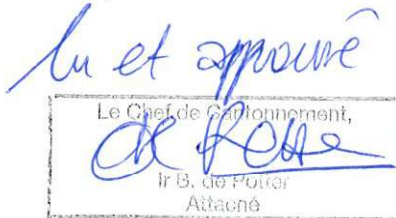 lu et approuvé
Le Chef de Cantonnement,
Ir B. de Potter
Attaché